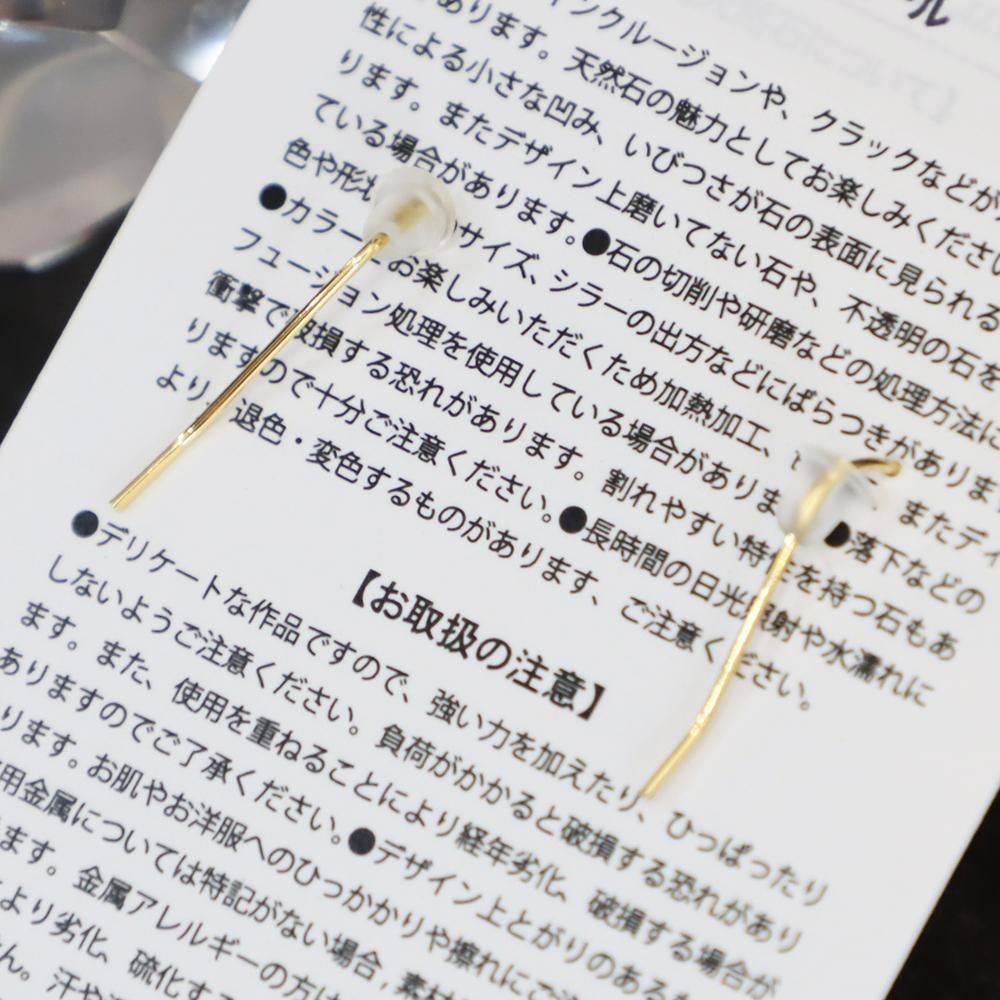 ル
あります。天然石の魅力としてお楽しみください
インクルージョンや、クラックなどが
性による小さな凹み、いびつさが石の表面に見られる
ります。またデザイン上磨いてない石や、不透明の石を
ている場合があります。●石の切削や研磨などの処理方法に
色や形状 サイズ、シラーの出方などにばらつきがありま
●カラー お楽しみいただくため加熱加工、 またディ
フュージョン処理を使用している場合がありま ●落下などの
衝撃で破損する恐れがあります。割れやすい特性を持つ石もあ
りますので十分ご注意ください。●長時間の日光照射や水濡れに
より、退色・変色するものがあります、ご注意ください。
【お取扱の注意】
●デリケートな作品ですので、強い力を加えたり、ひっぱったり
しないようご注意ください。負荷がかかると破損する恐れがあり
ます。また、使用を重ねることにより経年劣化、破損する場合が
ありますのでご了承ください。●デザイン上とがりのある
ります。お肌やお洋服へのひっかかりや擦れにご注
用金属については特記がない場合,素材
ます。金属アレルギーの方は
より劣化、硫化す
ん。汗や